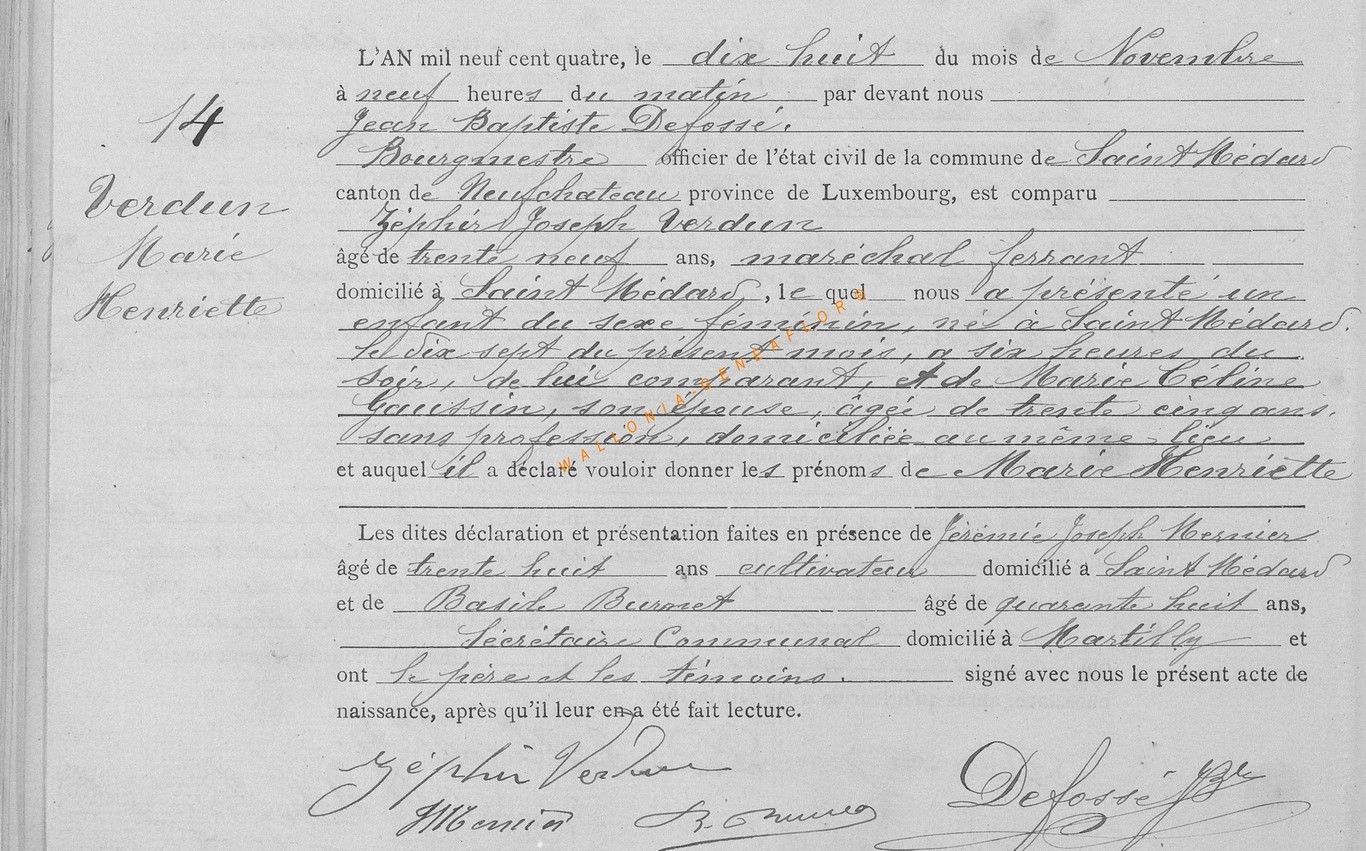 14
Verdun
Marie
Henriette
L'AN mil neuf cent quatre, le dix huit du mois de Novembre
à neuf heures du matin par devant nous
Jean Baptiste Defossé.
Bourgmestre officier de l'état civil de la commune de Saint Médard
canton de Neufchateau province de Luxembourg, est comparu
Zéphir Joseph Verdun
âgé de trente neuf ans, maréchal ferrant
domicilié à Saint Médard, le quel nous a présenté un
enfant du sexe féminin, né à Saint Médard.
le dix sept du présent mois, a six heures du
soir, de lui comparant, et de Marie Céline
Gaussin, son épouse, âgée de trente cinq ans.
sans profession, domiciliée au même lieu
et auquel il a déclaré vouloir donner les prénoms de Marie Henriette
Les dites déclaration et présentation faites en présence de Jérémie Joseph Mernier
âgé de trente huit ans cultivateur domicilié à Saint Médard
et de Basile Burnet âgé de quarante huit ans,
Secrétaire Communal domicilié à Martilly et
ont le père et les témoins. signé avec nous le présent acte de
naissance, après qu'il leur en a été fait lecture.
Zéphir Verdun
Defossé JB
WALLONIA-GENEAFLOR